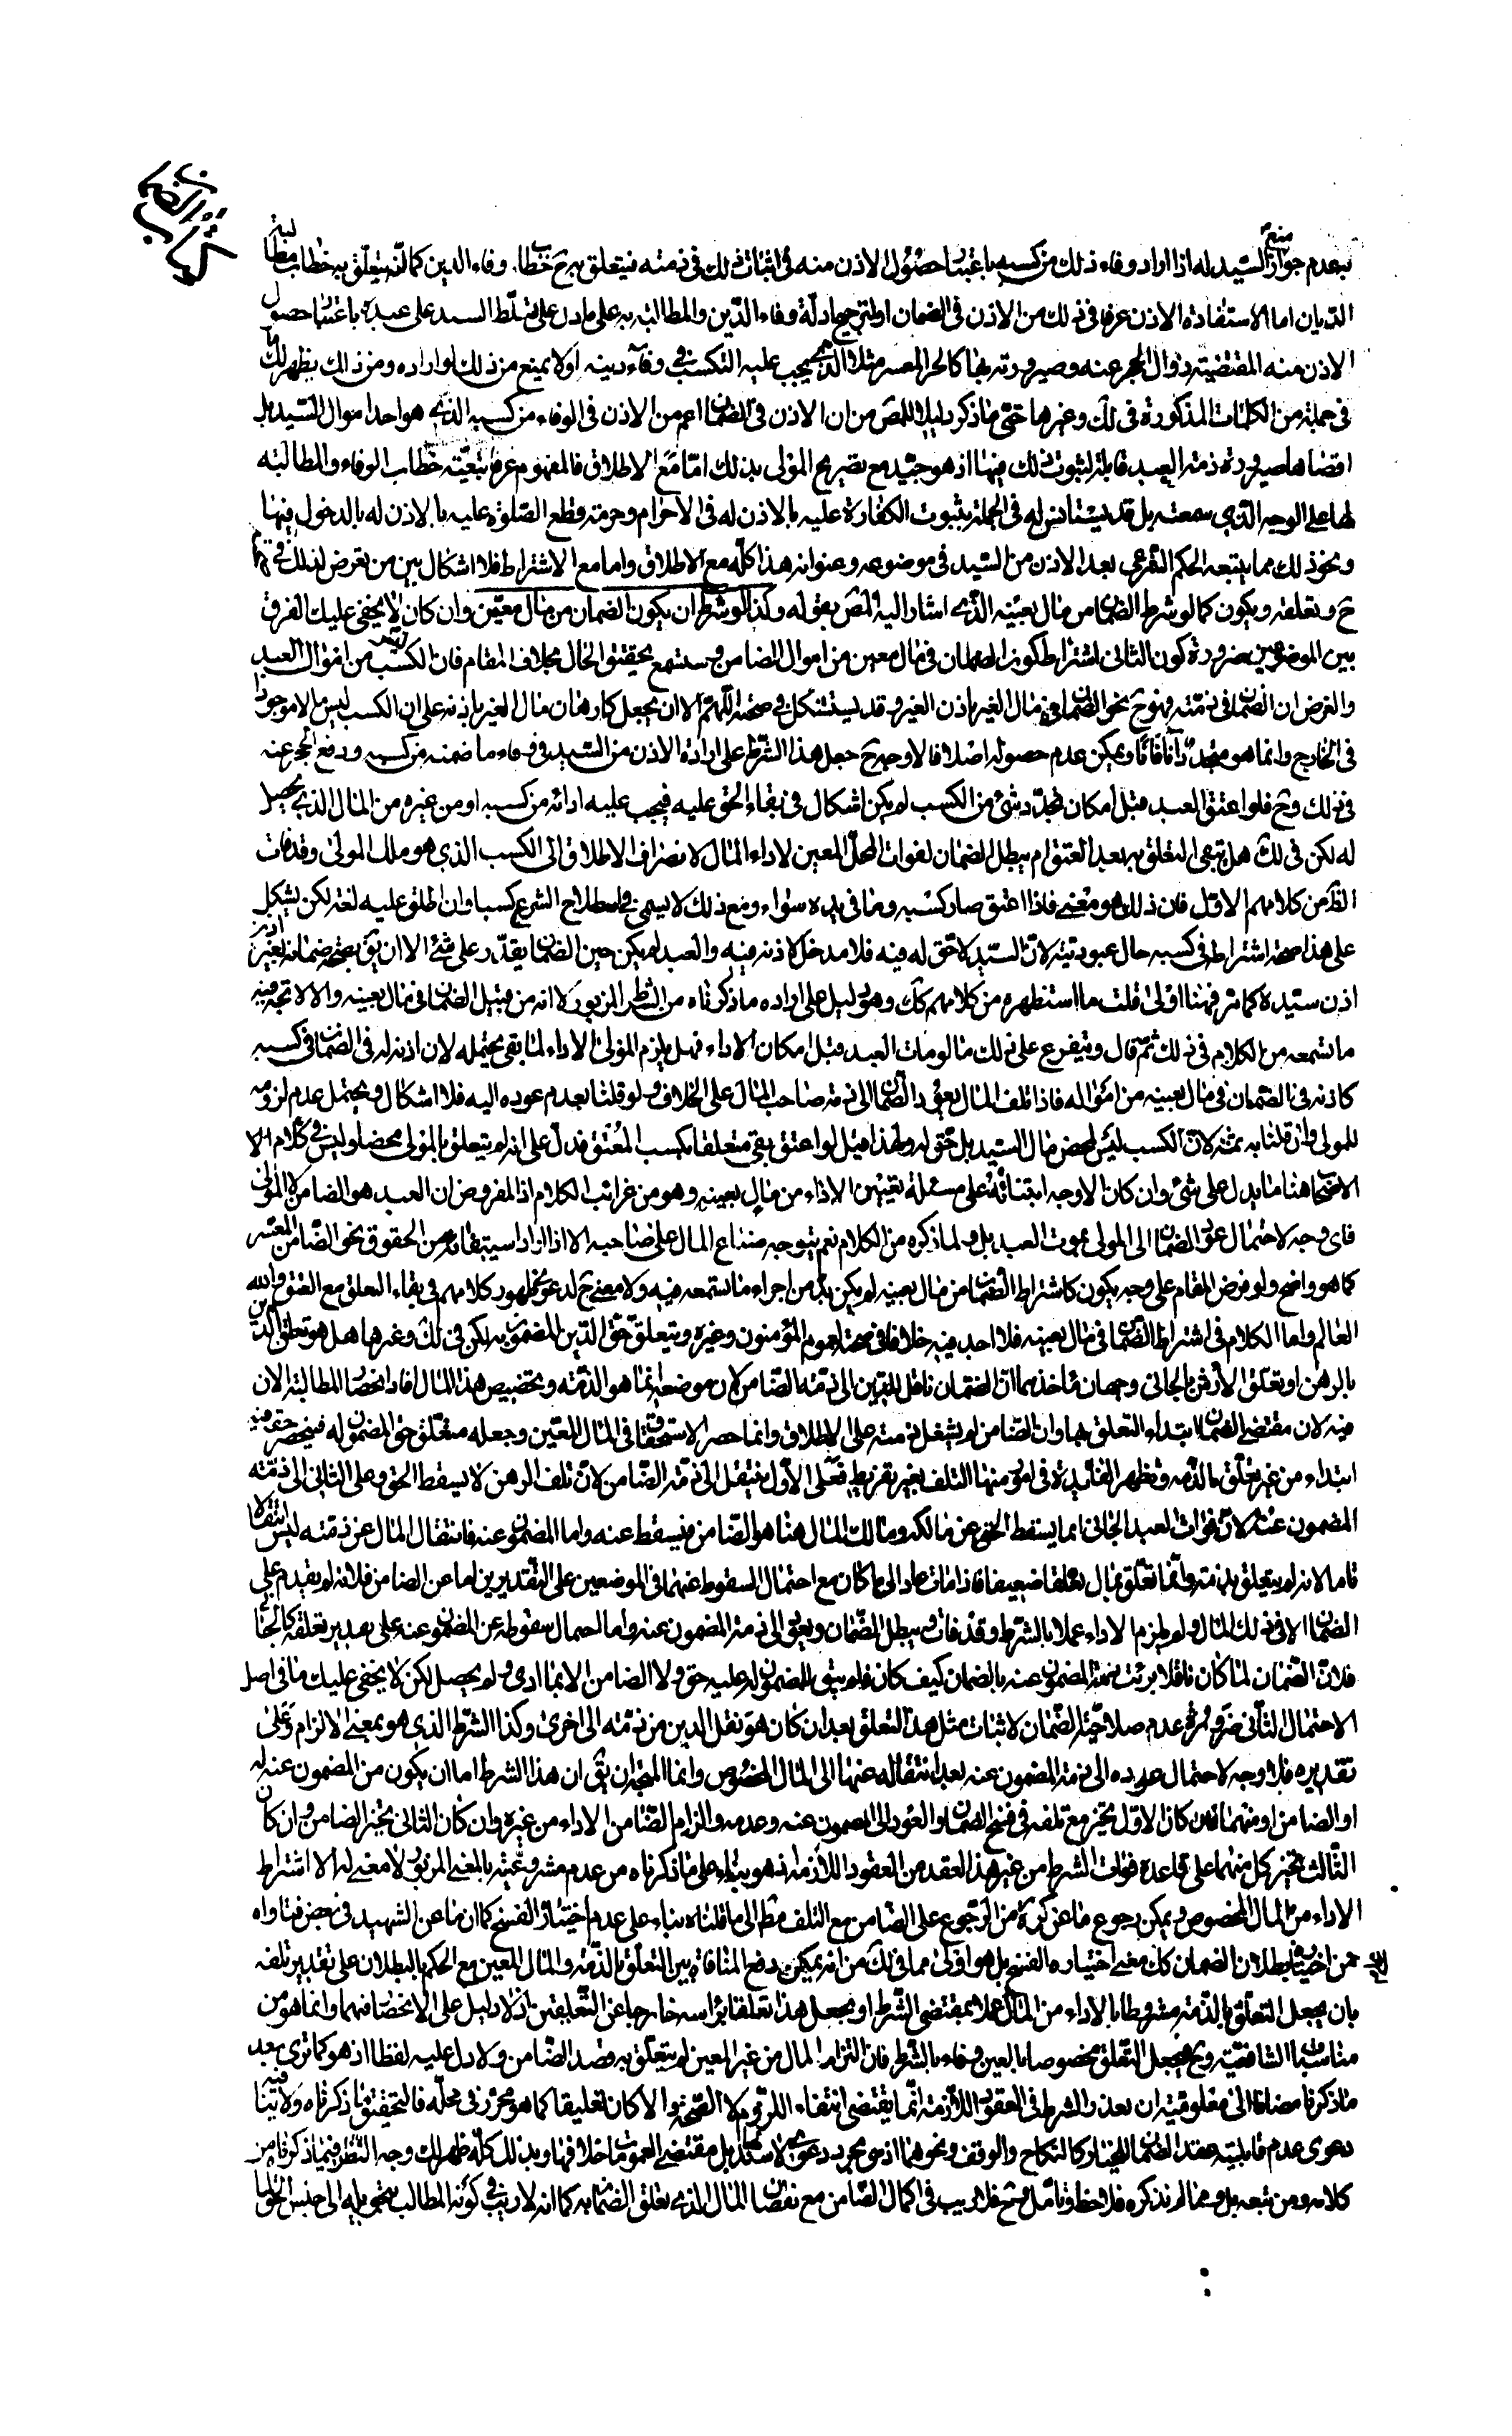 كتاب الضمان
بعدم جواز منع السيد له اذا اراد وفاء ذلك من كسبه باعتبار حصول الاذن منه فى اثبات ذلك فى ذمته فيتعلق به ح خطاب وفاء الدين كما انه يتعلق به خطاب مطالبة
الديان اما لاستفادة الاذن عرفا فى ذلك من الاذن فى الضمان او لترجيح ادلة وفاء الدين والمطالبة به على ما دل على تسلط السيد على عبده باعتبار حصول
الاذن منه المقتضية زوال الحجر عنه وصيرورته بها كالحر المعسر مثلا الذى يجب عليه التكسب فى وفاء دينه او لا يمنع من ذلك لو اراده ومن ذلك يظهر لك ما
فى جملة من الكلمات المذكورة فى لك وغيرها حتى ما ذكر دليلا للمص من ان الاذن فى الضمان اعم من الاذن فى الوفاء من كسبه الذى هو احد اموال السيد بل
اقصاها صيرورة ذمة العبد قابلة لثبوت ذلك فيها اذ هو جيد مع تصريح المولى بذلك اما مع الاطلاق فالمفهوم عرفا تبعيته خطاب الوفاء والمطالبة
لها على الوجه الذى سمعته بل قد يستانس له فى الجملة بثبوت الكفارة عليه بالاذن له فى الاحرام وحرمة قطع الصلوة عليه بالاذن له بالدخول فيها
ونحو ذلك مما يتبعه الحكم الشرعى بعد الاذن من السيد فى موضوعه وعنوانه هذا كله مع الاطلاق واما مع الاشتراط فلا اشكال بين من تعرض لذلك فى
ح وتعلقه ويكون كما لو شرط الضمان من مال بعينه الذى اشار اليه المص بقوله وكذا لو شرط ان يكون الضمان من مال معين وان كان لا يخفى عليك الفرق
بين الموضوعين ضرورة كون الثانى اشتراط كون الضمان فى مال معين من اموال الضامن وستسمع تحقيق الحال بخلاف المقام فان الكسب ليس من اموال العبد
والغرض ان الضمان فى ذمته فهو ح نحو الضمان فى مال الغير باذن الغير وقد يستشكل فى صحته اللهم الا ان يجعل كارهان مال الغير باذنه على ان الكسب ليس مالا موجودا
فى الخارج وانما هو متجدد آنا فآنا ويمكن عدم حصوله اصلا فالاوجه ح جعل هذا الشرط على ارادة الاذن من السيد فى وفاء ما ضمنه من كسبه ورفع الحجر عنه
فى ذلك وح فلو اعتق العبد قبل امكان تجدد شئ من الكسب لم يكن اشكال فى بقاء الحق عليه فيجب عليه ادائه من كسبه او من غيره من المال الذى يحصل
له لكن فى لك هل يبقى التعلق به بعد العتق ام يبطل الضمان لفوات المحل المعين لاداء المال لانصراف الاطلاق الى الكسب الذى هو ملك المولى وقد فات
الظ من كلامهم الاول فان ذلك هو معنى فاذا اعتق صار كسبه وما فى يده سواء ومع ذلك لا يسمى فى اصطلاح الشرع كسبا وان اطلق عليه لغة لكن يشكل
على هذا صحة اشتراطه فى كسبه حال عبوديته لان السيد لا حق له فيه فلا مدخل لاذنه فيه والعبد لم يكن حين الضمان يقدر على شئ الا ان يق بصحة ضمانه بغير
اذن سيده كما مر فهنا اولى قلت ما استظهره من كلامهم كك وهو دليل على اراده ما ذكرناه من الشرط المزبور لا انه من قبيل الضمان فى مال بعينه والا لاتجه فيه
ما تسمعه من الكلام فى ذلك ثم قال ويتفرع على ذلك ما لو مات العبد قبل امكان الاداء فهل يلزم المولى الاداء لما بقى يحتمله لان اذنه له فى الضمان فى كسبه
كاذنه فى الضمان فى مال بعينه من امواله فاذا تلف المال يعود الضمان الى ذمة صاحب المال على الخلاف ولو قلنا بعدم عوده اليه فلا اشكال ويحتمل عدم لزومه
للمولى وان قلنا به ثمة لان الكسب ليس محض مال السيد بل حق له ولهذا قيل لو اعتق بقى متعلقا بكسب المعتق فدل على انه لم يتعلق بالمولى محضا وليس فى كلام
الاصحاب هنا ما يدل على شئ وان كان الاوجه ابتنائه على مسئلة تعيين الاداء من مال بعينه وهو من غرائب الكلام اذ المفروض ان العبد هو الضامن لا المولى
فاى وجه لاحتمال عود الضمان الى المولى بموت العبد بل ولما ذكره من الكلام نعم يتوجه ضياع المال على صاحبه الا اذا اراد استيفائه من الحقوق نحو الضامن المعسر
كما هو واضح ولو فرض المقام على وجه يكون كاشتراط الضمان من مال بعينه لم يكن بد من اجراء ما تستمعه فيه ولا معنى ح لدعوى ظهور كلامهم فى بقاء التعلق مع العتق والله
العالم واما الكلام فى اشتراط الضمان فى مال بعينه فلا اجد فيه خلافا فى صحته لعموم المؤمنون وغيره ويتعلق حق الدين المضمون به لكن فى لك وغيرها هل هو تعلق الدين
بالرهن او تعلق الارش بالجانى وجهان مأخذهما ان الضمان ناقل للدين الى ذمة الضامن لان موضعه انما هو الذمة وتخصيص هذا المال افاد انحصار المطالبة الان
فيه لان مقتضى الضمان ابتداء التعلق بها وان الضامن لم يشغل ذمته على الاطلاق وانما حصر الاستحقاق فى المال المعين وجعله متعلق حق المضمون له فينحصر حقه فيه
ابتداء من غير تعلق بالذمة وتظهر الفائدة فى امور منها التلف بغير تفريط فعلى الاول ينتقل الى ذمة الضامن لان تلف الرهن لا يسقط الحق وعلى الثانى الى ذمة
المضمون عنه لان فوات العبد الجانى انما يسقط الحق عن مالكه ومالك المال هنا هو الضامن فيسقط عنه واما المضمون عنه فانتقال المال عن ذمته ليس انتقالا
تاما لانه لم يتعلق بذمته وانما تعلق بمال تعلقا ضعيفا فاذا فات عاد الى ما كان مع احتمال السقوط عنهما فى الموضعين على التقديرين اما عن الضامن فلانه لم يقدم على
الضمان الا فى ذلك المال ولم يلتزم الاداء عملا بالشرط وقد فات فيبطل الضمان ويعود الى ذمة المضمون عنه واما احتمال سقوطه عن المضمون عنه على تقدير تعلقه كالجانى
فلان الضمان لما كان ناقلا برئت ذمة المضمون عنه بالضمان كيف كان فلم يبق للمضمون له عليه حق ولا الضامن الا بما ادى ولم يحصل لكن لا يخفى عليك ما فى اصل
الاحتمال الثانى ضرورة عدم صلاحية الضمان لاثبات مثل هذا التعلق بعد ان كان هو نقل الدين من ذمته الى اخرى وكذا الشرط الذى هو بمعنى الالزام وعلى
تقديره فلا وجه لاحتمال عوده الى ذمة المضمون عنه بعد انتقاله عنها الى المال المخصوص وانما المتجه ان يق ان هذا الشرط اما ان يكون من المضمون عنه له
او الضامن او منهما فان كان الاول تخير مع تلفه فى فسخ الضمان والعود الى المضمون عنه وعدمه والزام الضامن الاداء من غيره وان كان الثانى تخير الضامن وان كان
الثالث تخير كل منهما على قاعدة فوات الشرط من غير هذا العقد من العقود اللازمة اذ هو بناء على ما ذكرناه من عدم مشروعيته بالمعنى المزبور لا معنى له الا اشتراط
الاداء من المال المخصوص ويمكن رجوع ما عن كرة من الرجوع على الضامن مع التلف مط الى ما قلناه بناء على عدم اختيار الفسخ كما ان ما عن الشهيد فى بعض فتاواه
من اختيار بطلان الضمان كك معنى اختياره الفسخ بل هو اولى مما فى لك من انه يمكن دفع المنافاة بين التعلق بالذمة والمال المعين مع الحكم بالبطلان على تقدير تلفه
بان يجعل التعلق بالذمة مشروطا بالاداء من المال عملا بمقتضى الشرط او يجعل هذا تعلقا برأسه خارجا عن التعلقين اذ لا دليل على الانحصار فيهما وانما هو من
مناسبات الشافعية وح فيجعل التعلق مخصوصا بالعين وفاء بالشرط فان التزام المال من غير المعين لم يتعلق به قصد الضامن ولا دل عليه لفظا اذ هو كما ترى بعد
ما ذكرنا مضافا الى معلومية ان تعذر الشرط فى العقود اللازمة انما يقتضى انتفاء اللزوم لا الصحة والا كان تعليقا كما هو محرر فى محله فالتحقيق ما ذكرناه ولا ينافيه
دعوى عدم قابلية عقد الضمان للخيار كالنكاح والوقف ونحوهما اذ هى مجرد دعوى لا شاهد لها بل مقتضى العمومات خلافها وبذلك كله ظهر لك وجه النظر فيما ذكرناه من
كلامه ومن تبعه بل ومما لم نذكره فلاحظ وتأمل وح فلا ريب فى اكمال الضامن مع نقصان المال الذى تعلق الضمان به كما انه لا ريب فى كونه المطالب بتحويله الى جنس الحق